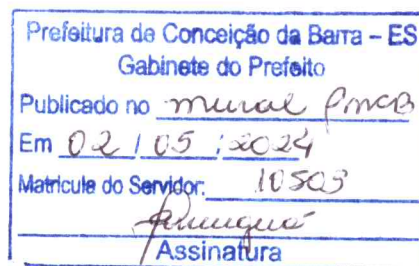 Prefeitura de Conceição da Barra – ES
Gabinete do Prefeito
Publicado no mural PMCB
Em 02 / 05 / 2024
Matricula do Servidor: 10503
Assinatura